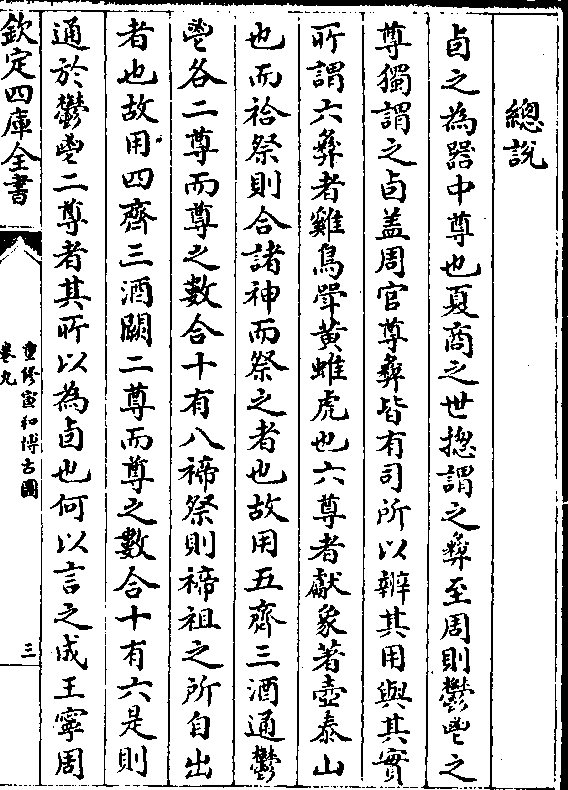 總說
卣之為器中尊也夏商之世揔謂之彝至周則鬱鬯之
尊獨謂之卣盖周官尊彝皆有司所以辨其用與其實
所謂六彝者雞鳥斝黄蜼虎也六尊者獻象著壺泰山
也而祫祭則合諸神而祭之者也故用五齊三酒通鬱
鬯各二尊而尊之數合十有八禘祭則禘祖之所自出
者也故用四齊三酒闕二尊而尊之數合十有六是則
通於鬱鬯二尊者其所以為卣也何以言之成王寧周
欽定四庫全書
重修宣和博古圖
卷九
三